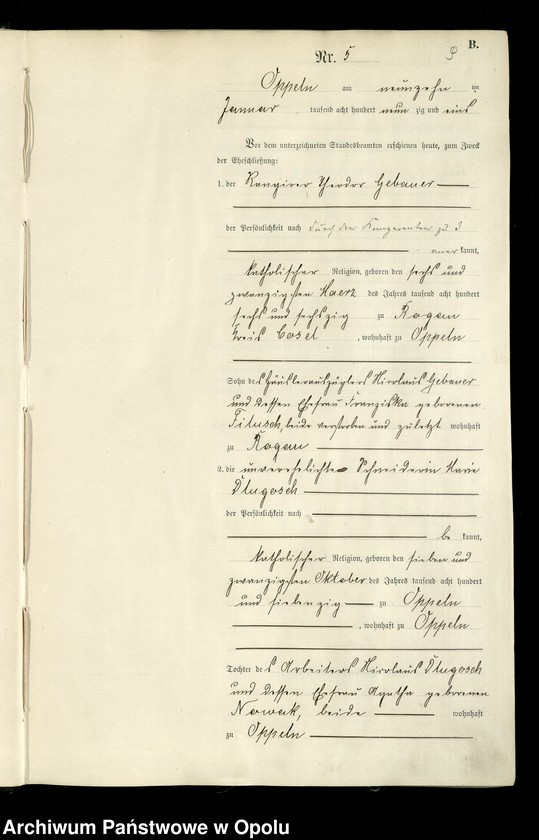 B.
Nr. 5
Oppeln am neunzehn ten
Januar tausend acht hundert neun zig und eins
Vor dem unterzeichneten Standesbeamten erschienen heute, zum Zweck
der Eheschließung:
1. der Rangirer Theodor Gebauer
der Persönlichkeit nach durch die
aner kannt,
katholischer Religion, geboren den sechs und
zwanzigsten Maerz des Jahres tausend acht hundert
sechs und sechszig zu Rogau
Kreis Cosel, wohnhaft zu Oppeln
Sohn des Häuslerauszüglers Nicolaus Gebauer
und dessen Ehefrau Franziska geborenen
beide verstorben und zuletzt wohnhaft
zu Rogau
2. die unverehelichte Schneiderin Marie
Dlugosch
der Persönlichkeit nach
be kannt,
katholischer Religion, geboren den sieben und
zwanzigsten Oktober des Jahres tausend acht hundert
und siebenzig zu Oppeln
, wohnhaft zu Oppeln
Tochter des Arbeiters Nicolaus Dlugosch
und dessen Ehefrau Agatha geborenen
Nowak, beide wohnhaft
zu Oppeln
Archiwum Państwowe w Opolu